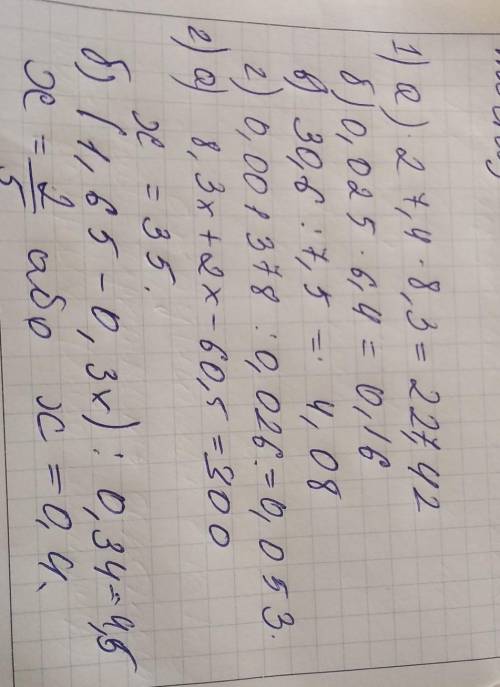 1) а) 27,4 · 8,3 = 227,42
б) 0,025 · 6,4 = 0,16
в) 30,6 : 7,5 = 4,08
г) 0,001378 : 0,026 = 0,053.
2) а) 8,3х + 2х - 60,5 = 300
х = 35.
б) (1,65 - 0,3х) : 0,34 = 4,5
х = 2/5 або х = 0,4.